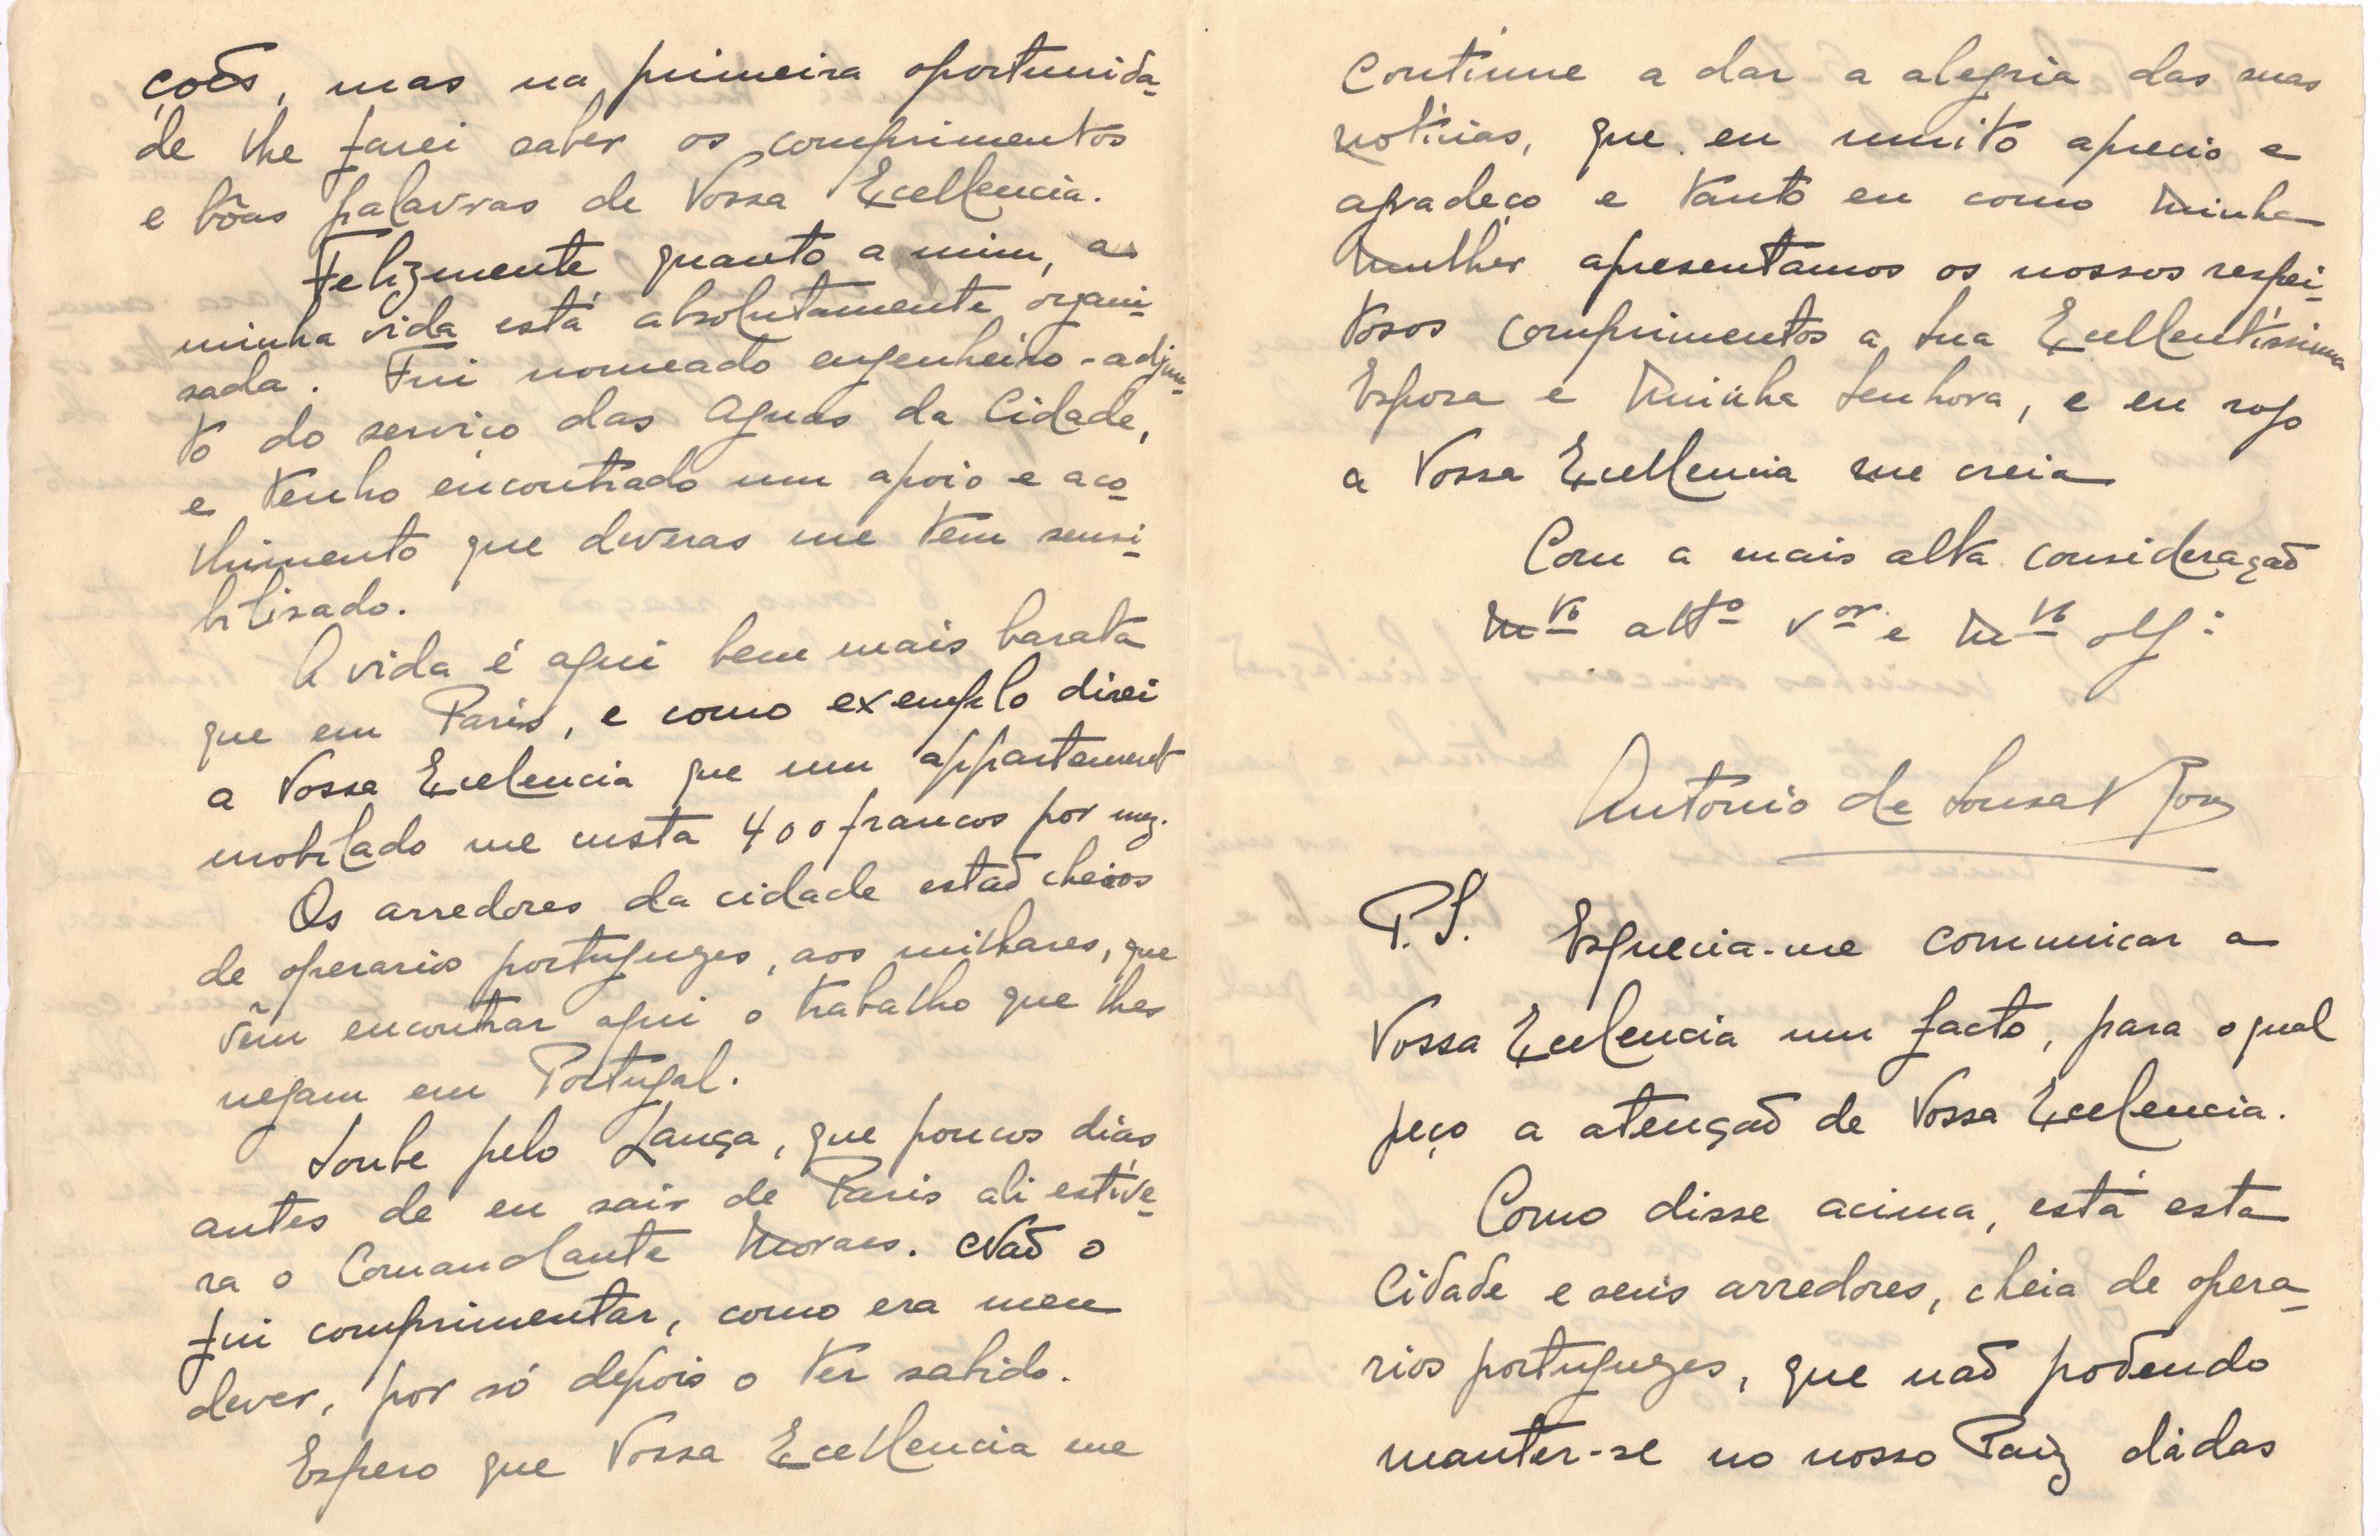 ções, mas na primeira oportunida-
de lhe farei saber os comprimentos
e bôas palavras de Vossa Excellencia.
Felizmente quanto a mim, a
minha vida está absolutamente organi-
sada. Fui nomeado engenheiro-adjun-
to do serviço das Aguas da Cidade,
e tenho encontrado um apoio e aco-
lhimento que deveras me tem sensi-
bilisado.
A vida é aqui bem mais barata
que em Paris, e como exemplo direi
a Vossa Excelencia que um appartement
mobilado me custa 400 francos por mez.
Os arredores da cidade estaõ cheios
de operarios portuguezes, aos milhares, que
vẽm encontrar aqui o trabalho que lhes
negam em Portugal.
Soube pelo Lança, que poucos dias
antes de eu sair de Paris ali estive-
ra o Comandante Moraes. Naõ o
fui comprimentar, como era meu
dever, por só depois o ter sabido.
Espero que Vossa Excellencia me
Continue a dar a alegria das suas
noticias, que eu muito aprecio e
agradeço e tanto eu como Minha
Mulher apresentamos os nossos respei-
tosos comprimentos a Sua Excellentissima
Esposa e Minha Senhora, e eu rogo
a Vossa Excellencia me creia
Com a mais alta consideraçaõ
Mto attº vor e Mto obg:
Antonio de Sousa
P.S. Esquecia-me comunicar a
Vossa Excelencia um facto, para o qual
peço a atençaõ de Vossa Excelencia.
Como disse acima, está esta
Cidade e seus arredores, cheia de opera-
rios portuguezes, que naõ podendo
manter-se no nosso Paiz dadas